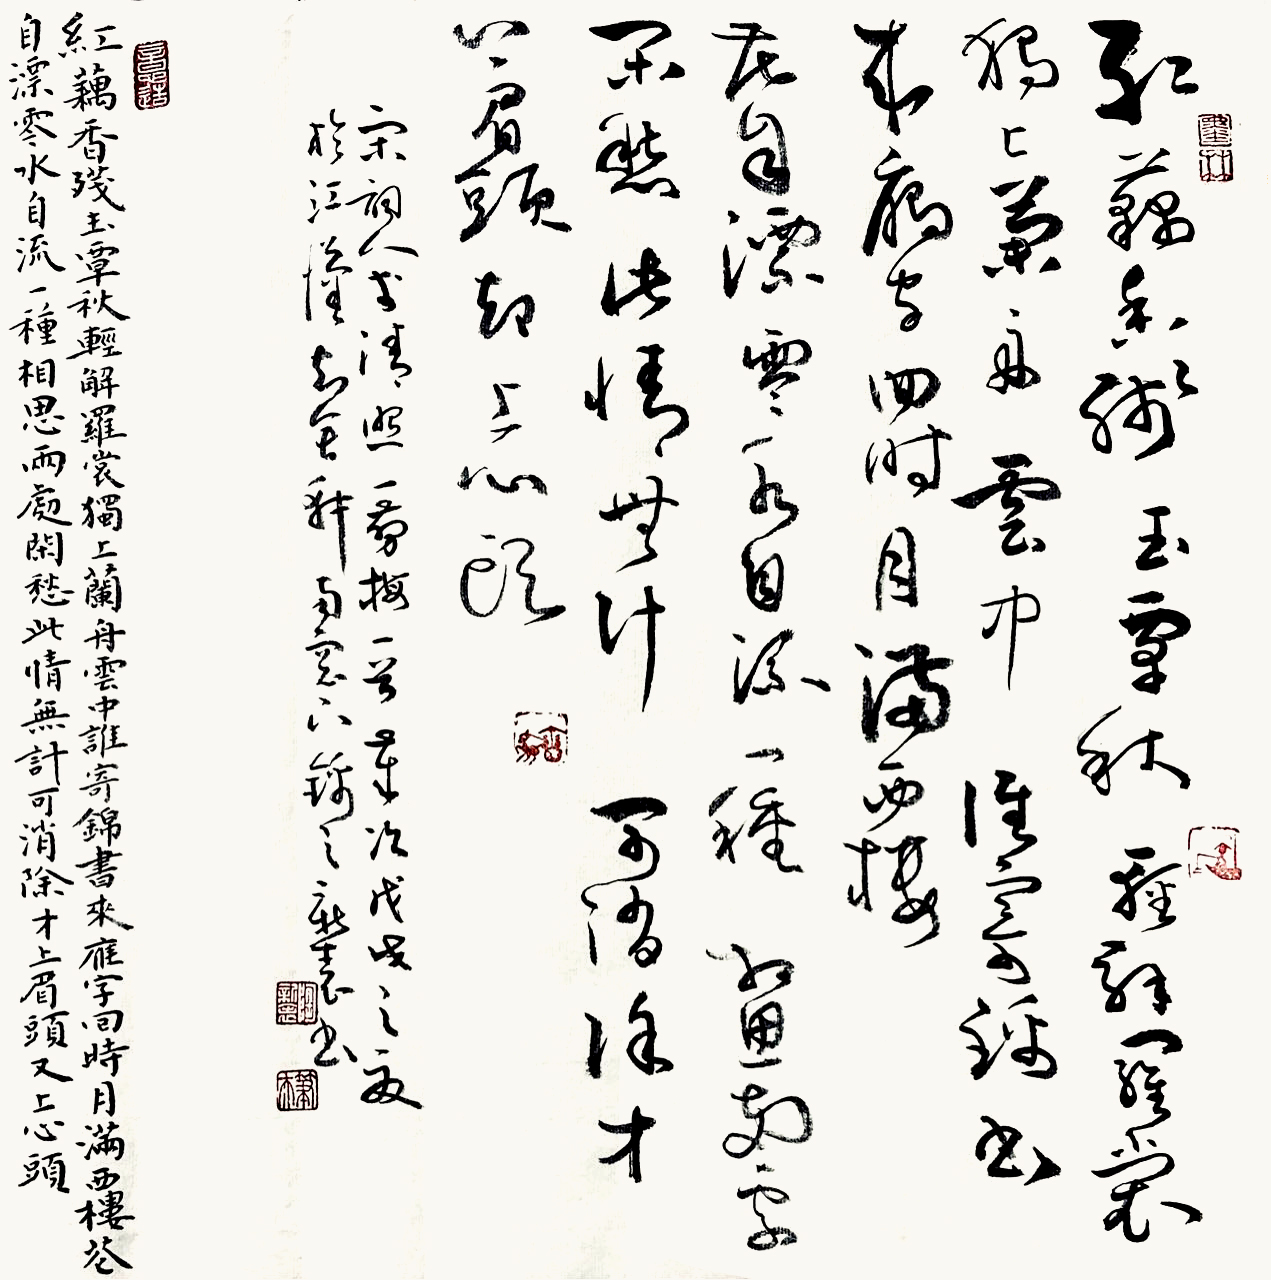 紅藕香殘玉覃秋輕解羅裳
獨上蘭舟雲中誰寄錦書
來雁字回時月滿西樓
花自漂零水自流一種相思兩處
閑愁此情無計可消除才
下眉頭却上心頭
宋詞人李清照一剪梅一首歲次戊戌之夏
於江漢軒南窗下書
紅藕香殘玉覃秋輕解羅裳獨上蘭舟雲中誰寄錦書來雁字回時月滿西樓花
自漂零水自流一種相思兩處閑愁此情無計可消除才上眉頭又上心頭